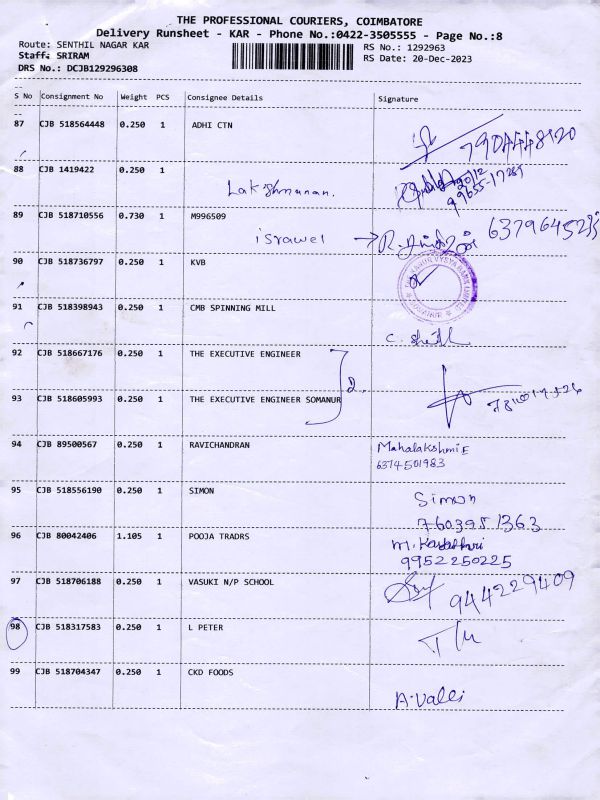 THE PROFESSIONAL COURIERS, COIMBATORE
Delivery Runsheet - KAR - Phone No.:0422-3505555 - Page No.:8
Route: SENTHIL NAGAR KAR
RS No.: 1292963
Staff: SRIRAM
RS Date: 20-Dec-2023
DRS No.: DCJB129296308
S No Consignment No Weight PCS Consignee Details Signature
87 CJB 518564448 0.250 1 ADHI CTN
88 CJB 1419422 0.250 1
Lakshmanan.
20/12
89 CJB 518710556 0.730 1 M996509
israwel
90 CJB 518736797 0.250 1 KVB
91 CJB 518398943 0.250 1 CMB SPINNING MILL
92 CJB 518667176 0.250 1 THE EXECUTIVE ENGINEER
93 CJB 518605993 0.250 1 THE EXECUTIVE ENGINEER SOMANUR
94 CJB 89500567 0.250 1 RAVICHANDRAN Mahalakshmi E
6374501983
95 CJB 518556190 0.250 1 SIMON Simon
7603951363
96 CJB 80042406 1.105 1 POOJA TRADRS
9952250225
97 CJB 518706188 0.250 1 VASUKI N/P SCHOOL 9442229409
98 CJB 518317583 0.250 1 L PETER
99 CJB 518704347 0.250 1 CKD FOODS
A.Valli